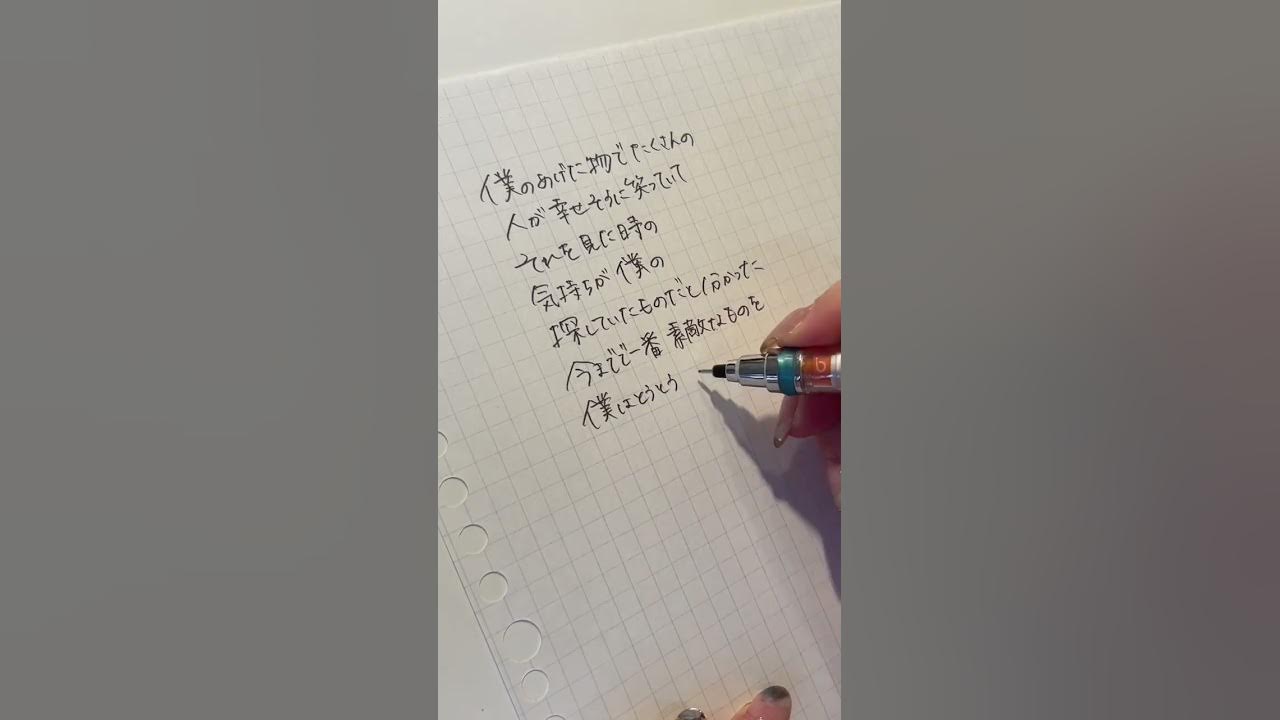 僕のあげた物でたくさんの
人が幸せそうに笑っていて
それを見た時の
気持ちが僕の
探していたものだと分かった
今までで一番素敵なものを
僕はとうとう